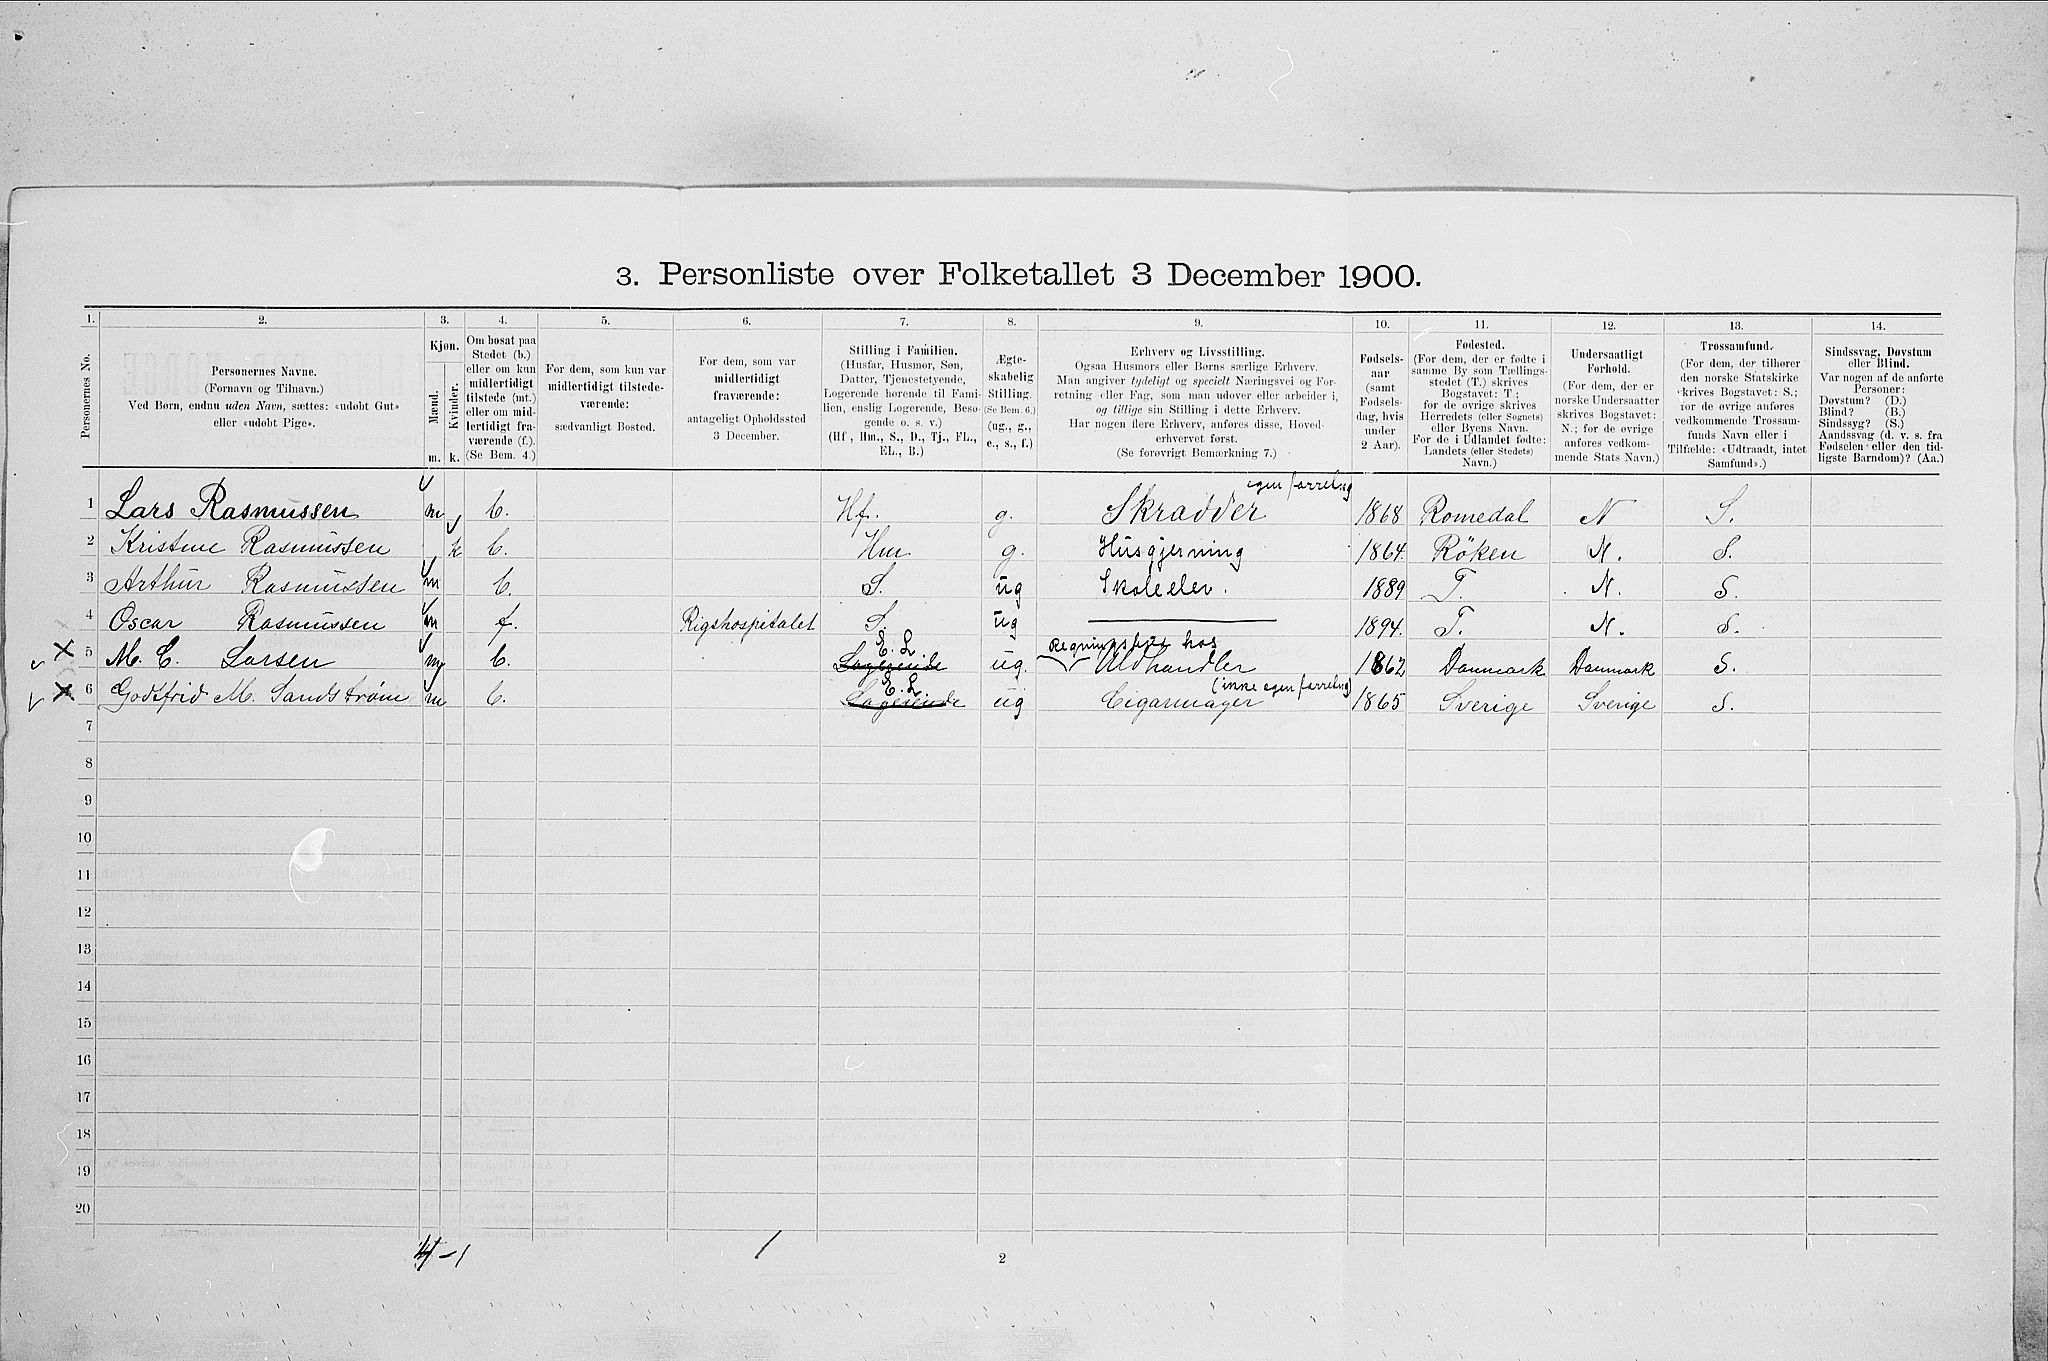 3. Personliste over Folketallet 3 December 1900.
1. 2. 3. 4. 5. 6. 7. 8. 9. 10. 11. 12. 13. 14.
Personernes No.
Personernes Navne.
(Fornavn og Tilnavn.)
Ved Børn, endnu uden Navn, sættes: «udøbt Gut»
eller «udøbt Pige».
Kjøn.
Mænd.
Kvinder.
m. k.
Om bosat paa
Stedet (b.)
eller om kun
midlertidigt
tilstede (mt.)
eller om mid-
lertidigt fra-
værende (f.).
(Se Bem. 4.)
For dem, som kun var
midlertidigt tilstede-
værende:
sædvanligt Bosted.
For dem, som var
midlertidigt
fraværende:
antageligt Opholdssted
3 December.
Stilling i Familien.
(Husfar, Husmor, Søn,
Datter, Tjenestetyende,
Logerende hørende til Fami-
lien, enslig Logerende, Besø-
gende o. s. v.)
(Hf., Hm., S., D., Tj., FL.,
EL., B.)
Ægte-
skabelig
Stilling.
(Se Bem. 6.)
(ug., g.,
e., s., f.)
Erhverv og Livsstilling.
Ogsaa Husmors eller Børns særlige Erhverv.
Man angiver tydeligt og specielt Næringsvei og For-
retning eller Fag, som man udøver eller arbeider i,
og tillige sin Stilling i dette Erhverv.
Har nogen flere Erhverv, anføres disse, Hoved-
erhvervet først.
(Se forøvrigt Bemærkning 7.)
Fødsels-
aar
(samt
Fødsels-
dag, hvis
under
2 Aar).
Fødested.
(For dem, der er fødte i
samme By som Tællings-
stedet (T.) skrives
Bogstavet: T.;
for de øvrige skrives
Herredets (eller Sognets)
eller Byens Navn.
For de i Udlandet fødte:
Landets (eller Stedets)
Navn.)
Undersaatligt
Forhold.
(For dem, der er
norske Undersaatter
skrives Bogstavet:
N.; for de øvrige
anføres vedkom-
mende Stats Navn.)
Trossamfund.
(For dem, der tilhører
den norske Statskirke
skrives Bogstavet: S.;
for de øvrige anføres
vedkommende Trossam-
funds Navn eller i
Tilfælde: «Udtraadt, intet
Samfund».)
Sindssvag, Døvstum
eller Blind.
Var nogen af de anførte
Personer:
Døvstum? (D.)
Blind? (B.)
Sindssyg? (S.)
Aandssvag (d. v. s. fra
Fødselen eller den tid-
ligste Barndom)? (Aa.)
egen forretng
1 Lars Rasmussen m b. Hf. g. Skrædder 1868 Romedal N S.
2 Kristine Rasmussen k b. Hm g. Husgjerning 1864. Røken N. S.
3 Arthur Rasmussen m b. S. ug Skoleelev. 1889 T. N. S.
4 Oscar Rasmussen m f. Rigshospitalet S. ug 1894. T. N. S.
E. L. hos
5 M. C. Larsen m b. Logerende ug. Uldhandler 1862 Danmark Danmark S.
E. L (ikke egen forretng)
6 Godtfrid M. Sandstrøm m b. Logerende ug Cigarmager 1865 Sverige Sverige S.
7
8
9
10
11
12
13
14
15
16
17
18
19
20
4-1 1
2